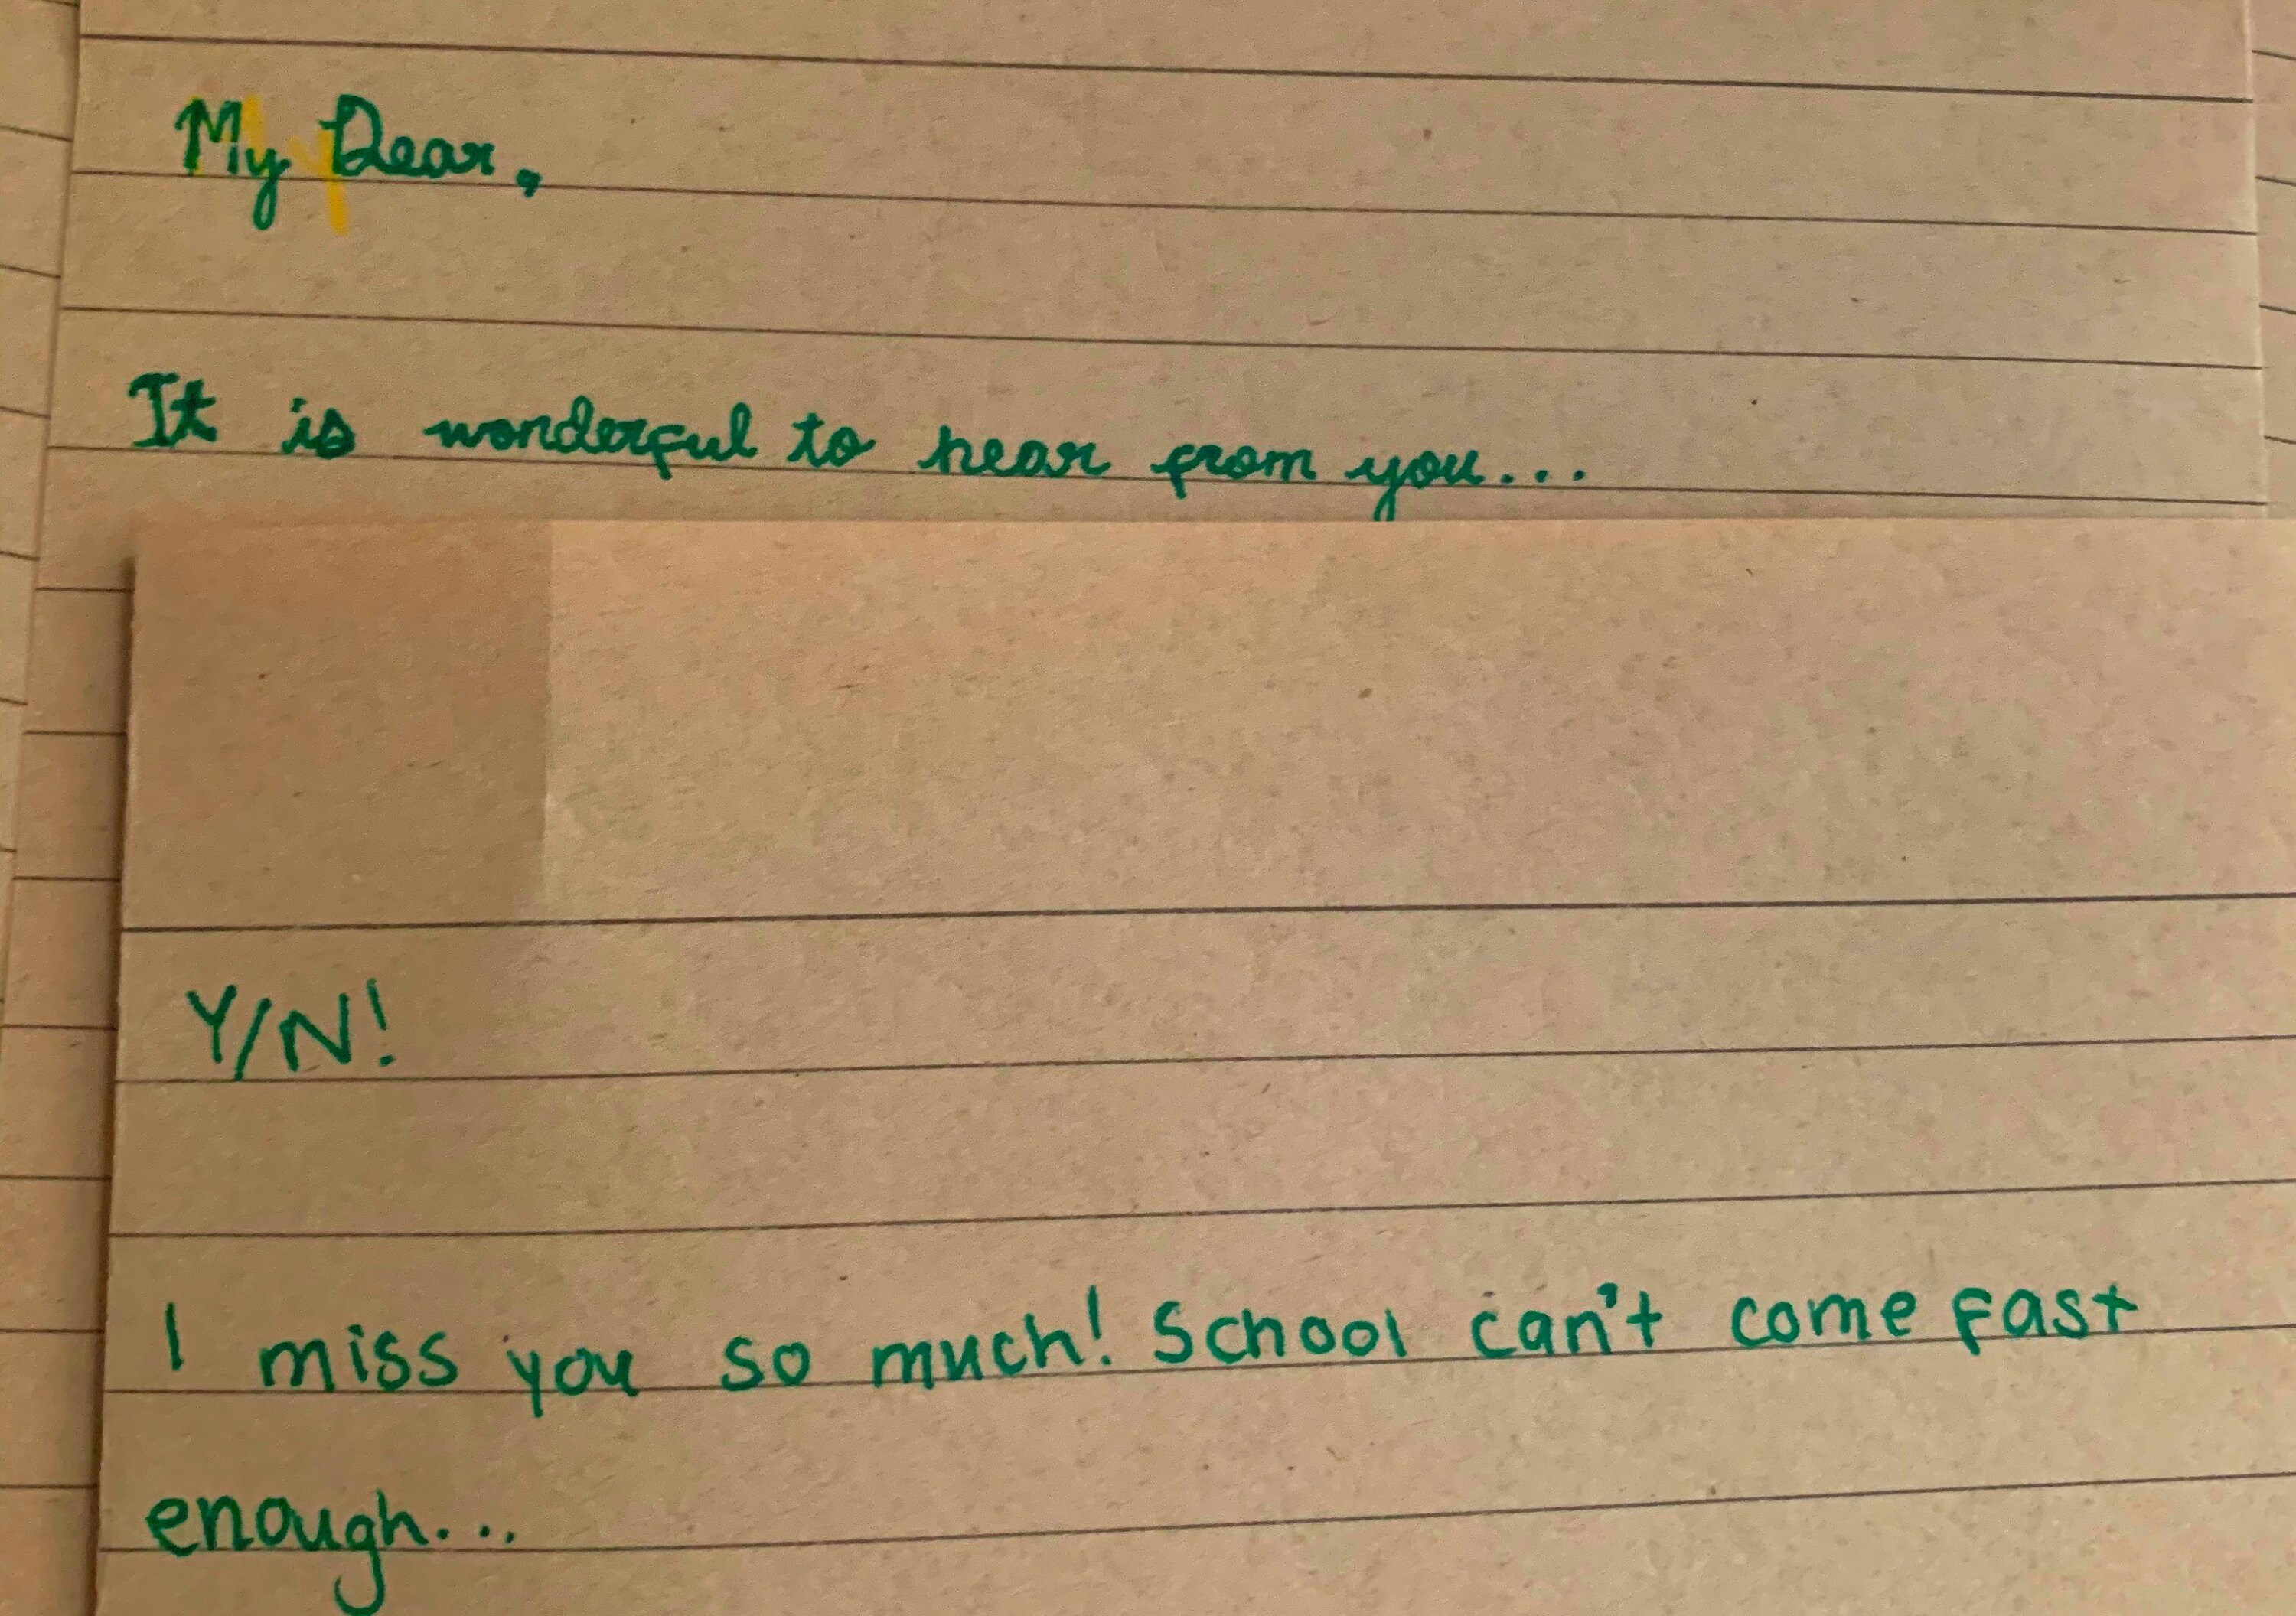 My Dear,
It is wonderful to hear from you...
Y/N!
I miss you so much! School can't come fast
enough...